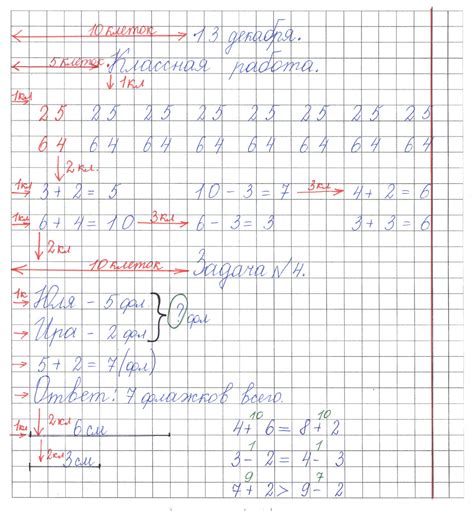 10 клеток 13 декабря.
5 клеток. Классная работа.
1кл
1кл
25 25 25 25 25 25 25 25
64 64 64 64 64 64 64 64
2кл.
1кл 3+2=5 10-3=7 3кл 4+2=6
1кл 6+4=10 3кл 6-3=3 3+3=6
2кл
10 клеток Задача №4.
1к Юля - 5 фл
Ира - 2 фл } ? фл
5+2=7(фл)
Ответ: 7 флажков всего.
2кл
1кл 6 см
2кл 3 см
10 10
4+6=8+2
1 1
3-2=4-3
9 7
7+2>9-2